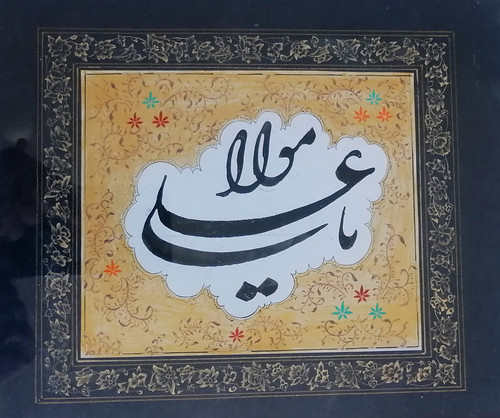 مولا
یا علی